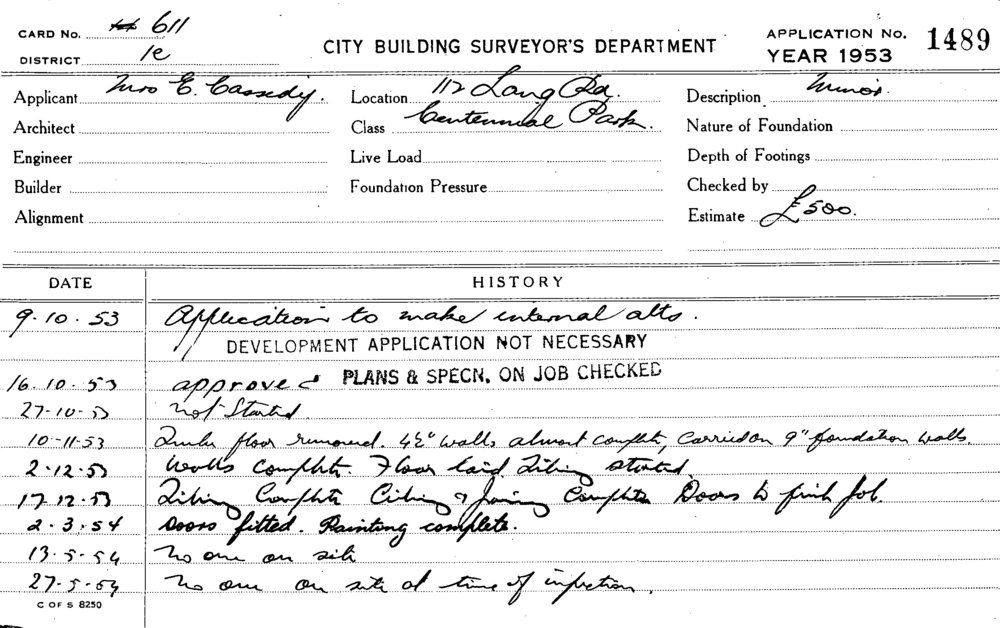 CARD No. 611
DISTRICT 1c
CITY BUILDING SURVEYOR'S DEPARTMENT
APPLICATION No. 1489
YEAR 1953
Applicant Mrs E. Cassedy.
Location 112 Lang Rd.
Description Minor.
Architect
Class Centennial Park.
Nature of Foundation
Engineer
Live Load
Depth of Footings
Builder
Foundation Pressure
Checked by
Alignment
Estimate £500.
DATE HISTORY
9.10.53 Application to make internal alts.
DEVELOPMENT APPLICATION NOT NECESSARY
16.10.53 approved PLANS & SPECN. ON JOB CHECKED
27-10-53 Not Started.
10-11-53 Timber floor removed. 4½" walls almost complete, carried on 9" foundation walls.
2.12.53 Walls complete. Floor laid. Tiling started.
17.12.53 Tiling Complete Ceiling & Joinery Complete Doors to finish Job.
2.3.54 Doors fitted. Painting complete.
13-5-54 No one on site
27-5-54 No one on site at time of inspection.
C OF S 8250